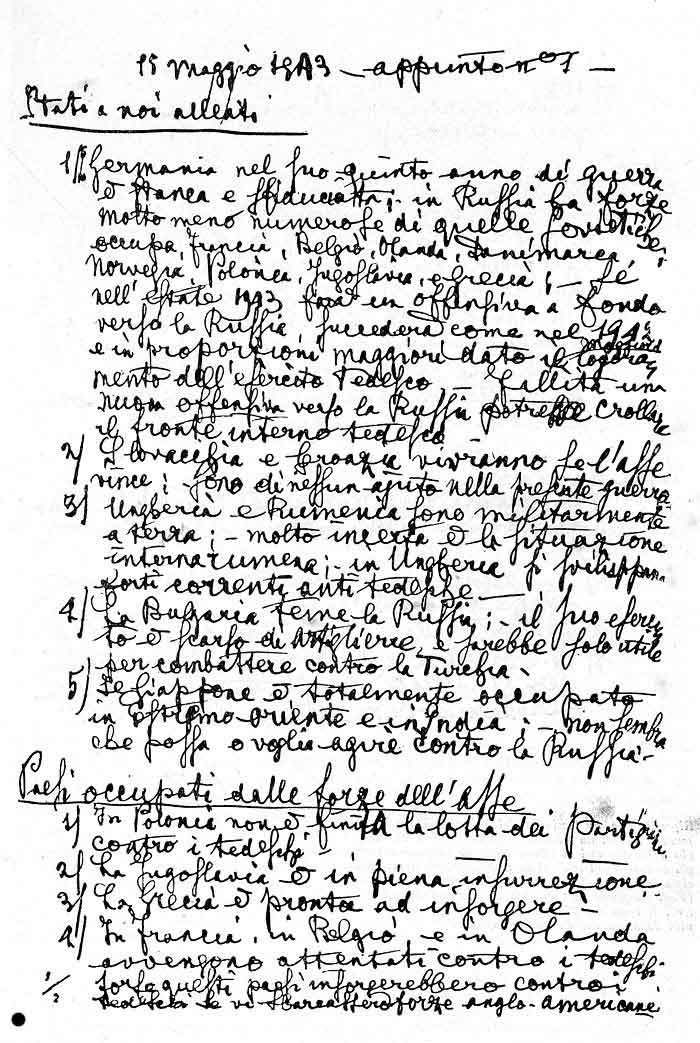 15 maggio 1943 — appunto nº 1 —
Stati a noi alleati
1) La Germania nel suo quinto anno di guerra
è stanca e sfiduciata; in Russia ha forze
molto meno numerose di quelle sovietiche;
occupa, Francia, Belgio, Olanda, Danimarca,
Norvegia, Polonia, Jugoslavia, e Grecia; — Se
nell'estate 1943 farà un offensiva a fondo
verso la Russia, succederà come nel 194
e in proporzioni maggiori dato il logora
mento dell'esercito tedesco — Fallita una
nuova offensiva verso la Russia potrebbe crollare
il fronte interno tedesco —
2) Slovacchia e Croazia vivranno se l'asse
vince; sono di nessun ajuto nella presente guerra
3) Ungheria e Rumenia sono militarmente
a terra; — molto incerta è la situazione
interna rumena; — in Ungheria si sviluppan
forti correnti anti tedesche —
4) La Bulgaria teme la Russia; — il suo eserci
to è scarso di artiglierie, e sarebbe solo utile
per combattere contro la Turchia.
5) Il Giappone è totalmente occupato
in estremo oriente e in India; — non sembra
che possa o voglia agire contro la Russia —
Paesi occupati dalle forze dell'Asse
1) In Polonia non è finita la lotta dei partigiani
contro i tedeschi —
2) La Jugoslavia è in piena insurrezione
3) La Grecia è pronta ad insorgere —
4) In Francia, in Belgio e in Olanda
avvengono attentati contro i tedeschi
forse questi paesi insorgerebbero contro i
tedeschi se vi sbarcassero forze anglo-americane
1/2